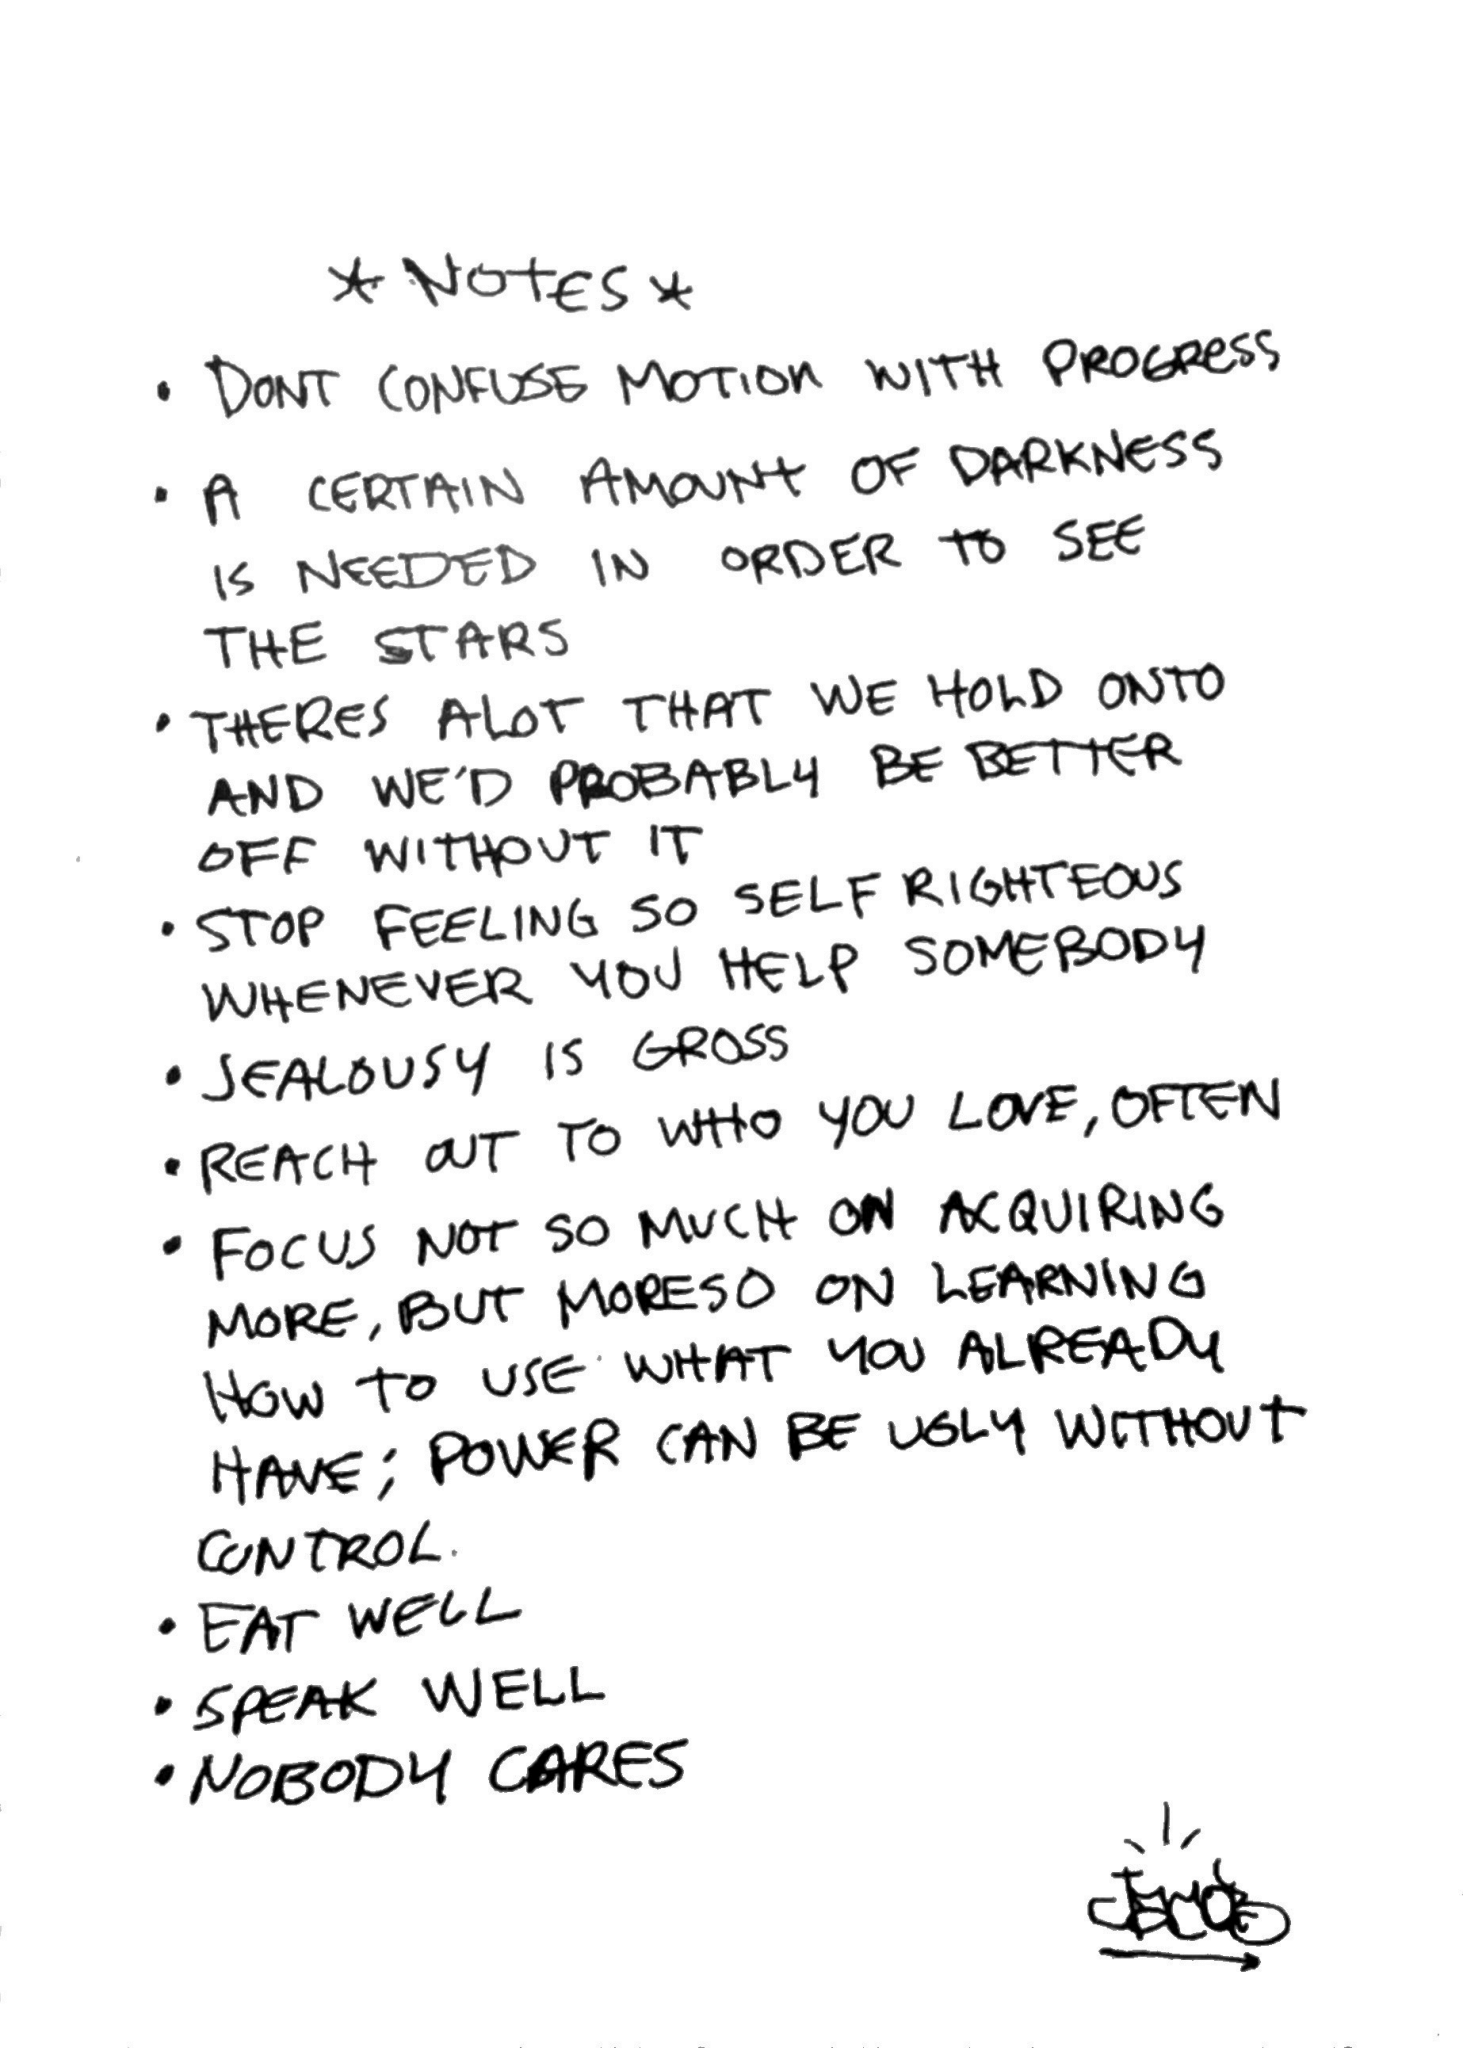 * NOTES *
• DONT CONFUSE MOTION WITH PROGRESS
• A CERTAIN AMOUNT OF DARKNESS
IS NEEDED IN ORDER TO SEE
THE STARS
• THERES ALOT THAT WE HOLD ONTO
AND WE'D PROBABLY BE BETTER
OFF WITHOUT IT
• STOP FEELING SO SELF RIGHTEOUS
WHENEVER YOU HELP SOMEBODY
• JEALOUSY IS GROSS
• REACH OUT TO WHO YOU LOVE, OFTEN
• FOCUS NOT SO MUCH ON ACQUIRING
MORE, BUT MORESO ON LEARNING
HOW TO USE WHAT YOU ALREADY
HAVE; POWER CAN BE UGLY WITHOUT
CONTROL.
• EAT WELL
• SPEAK WELL
• NOBODY CARES
JACOB